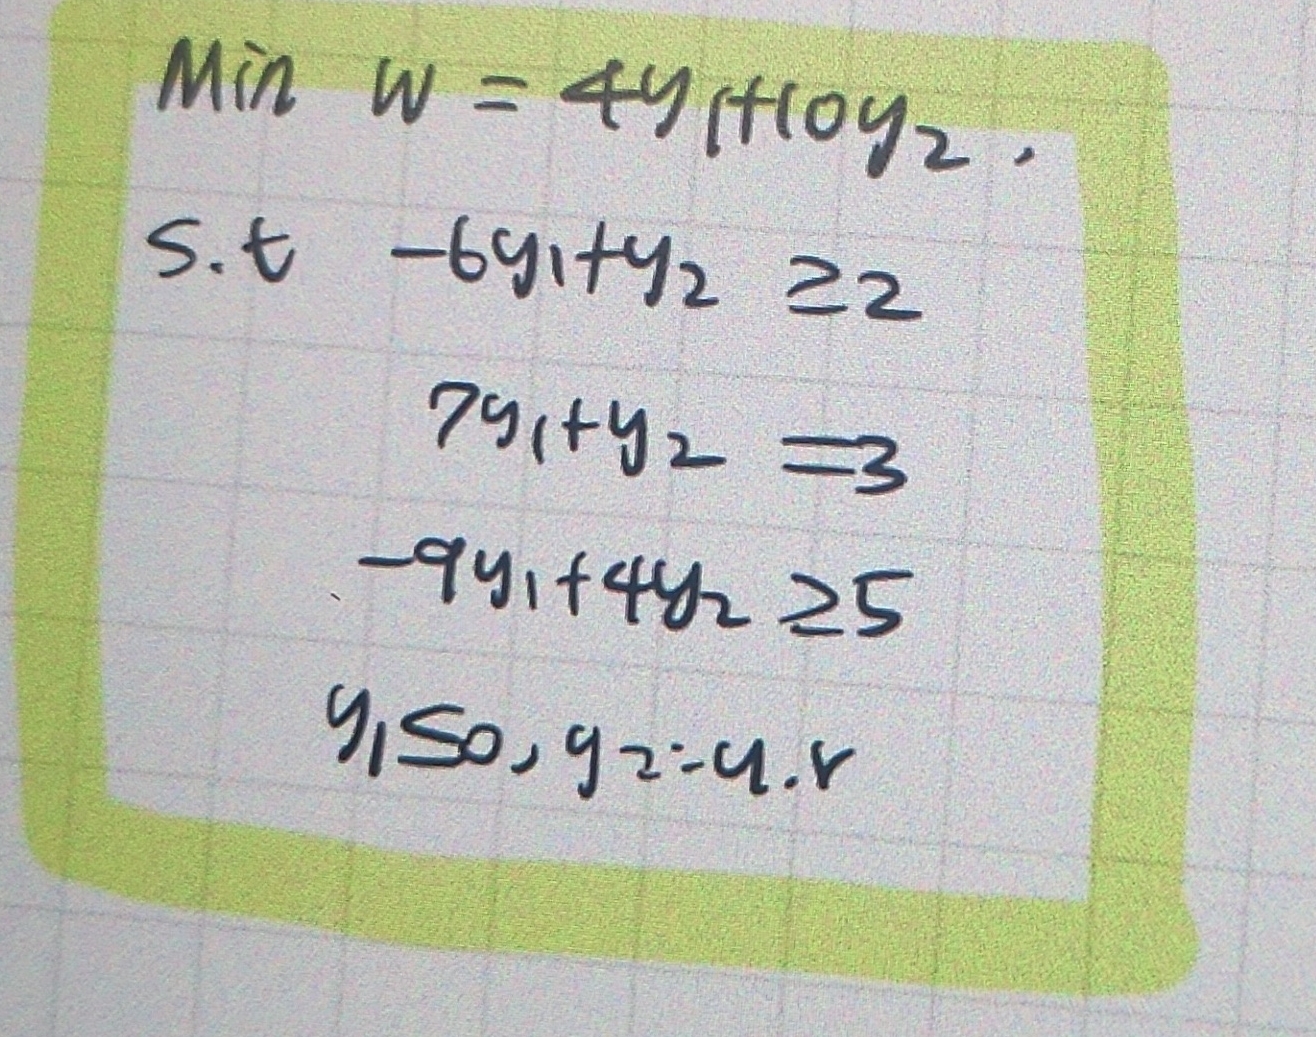 Min W = 4y₁+10y₂.
S.t -6y₁+y₂ ≥2
7y₁+y₂ =3
-9y₁+4y₂ ≥5
y₁≤0, y₂=u.r